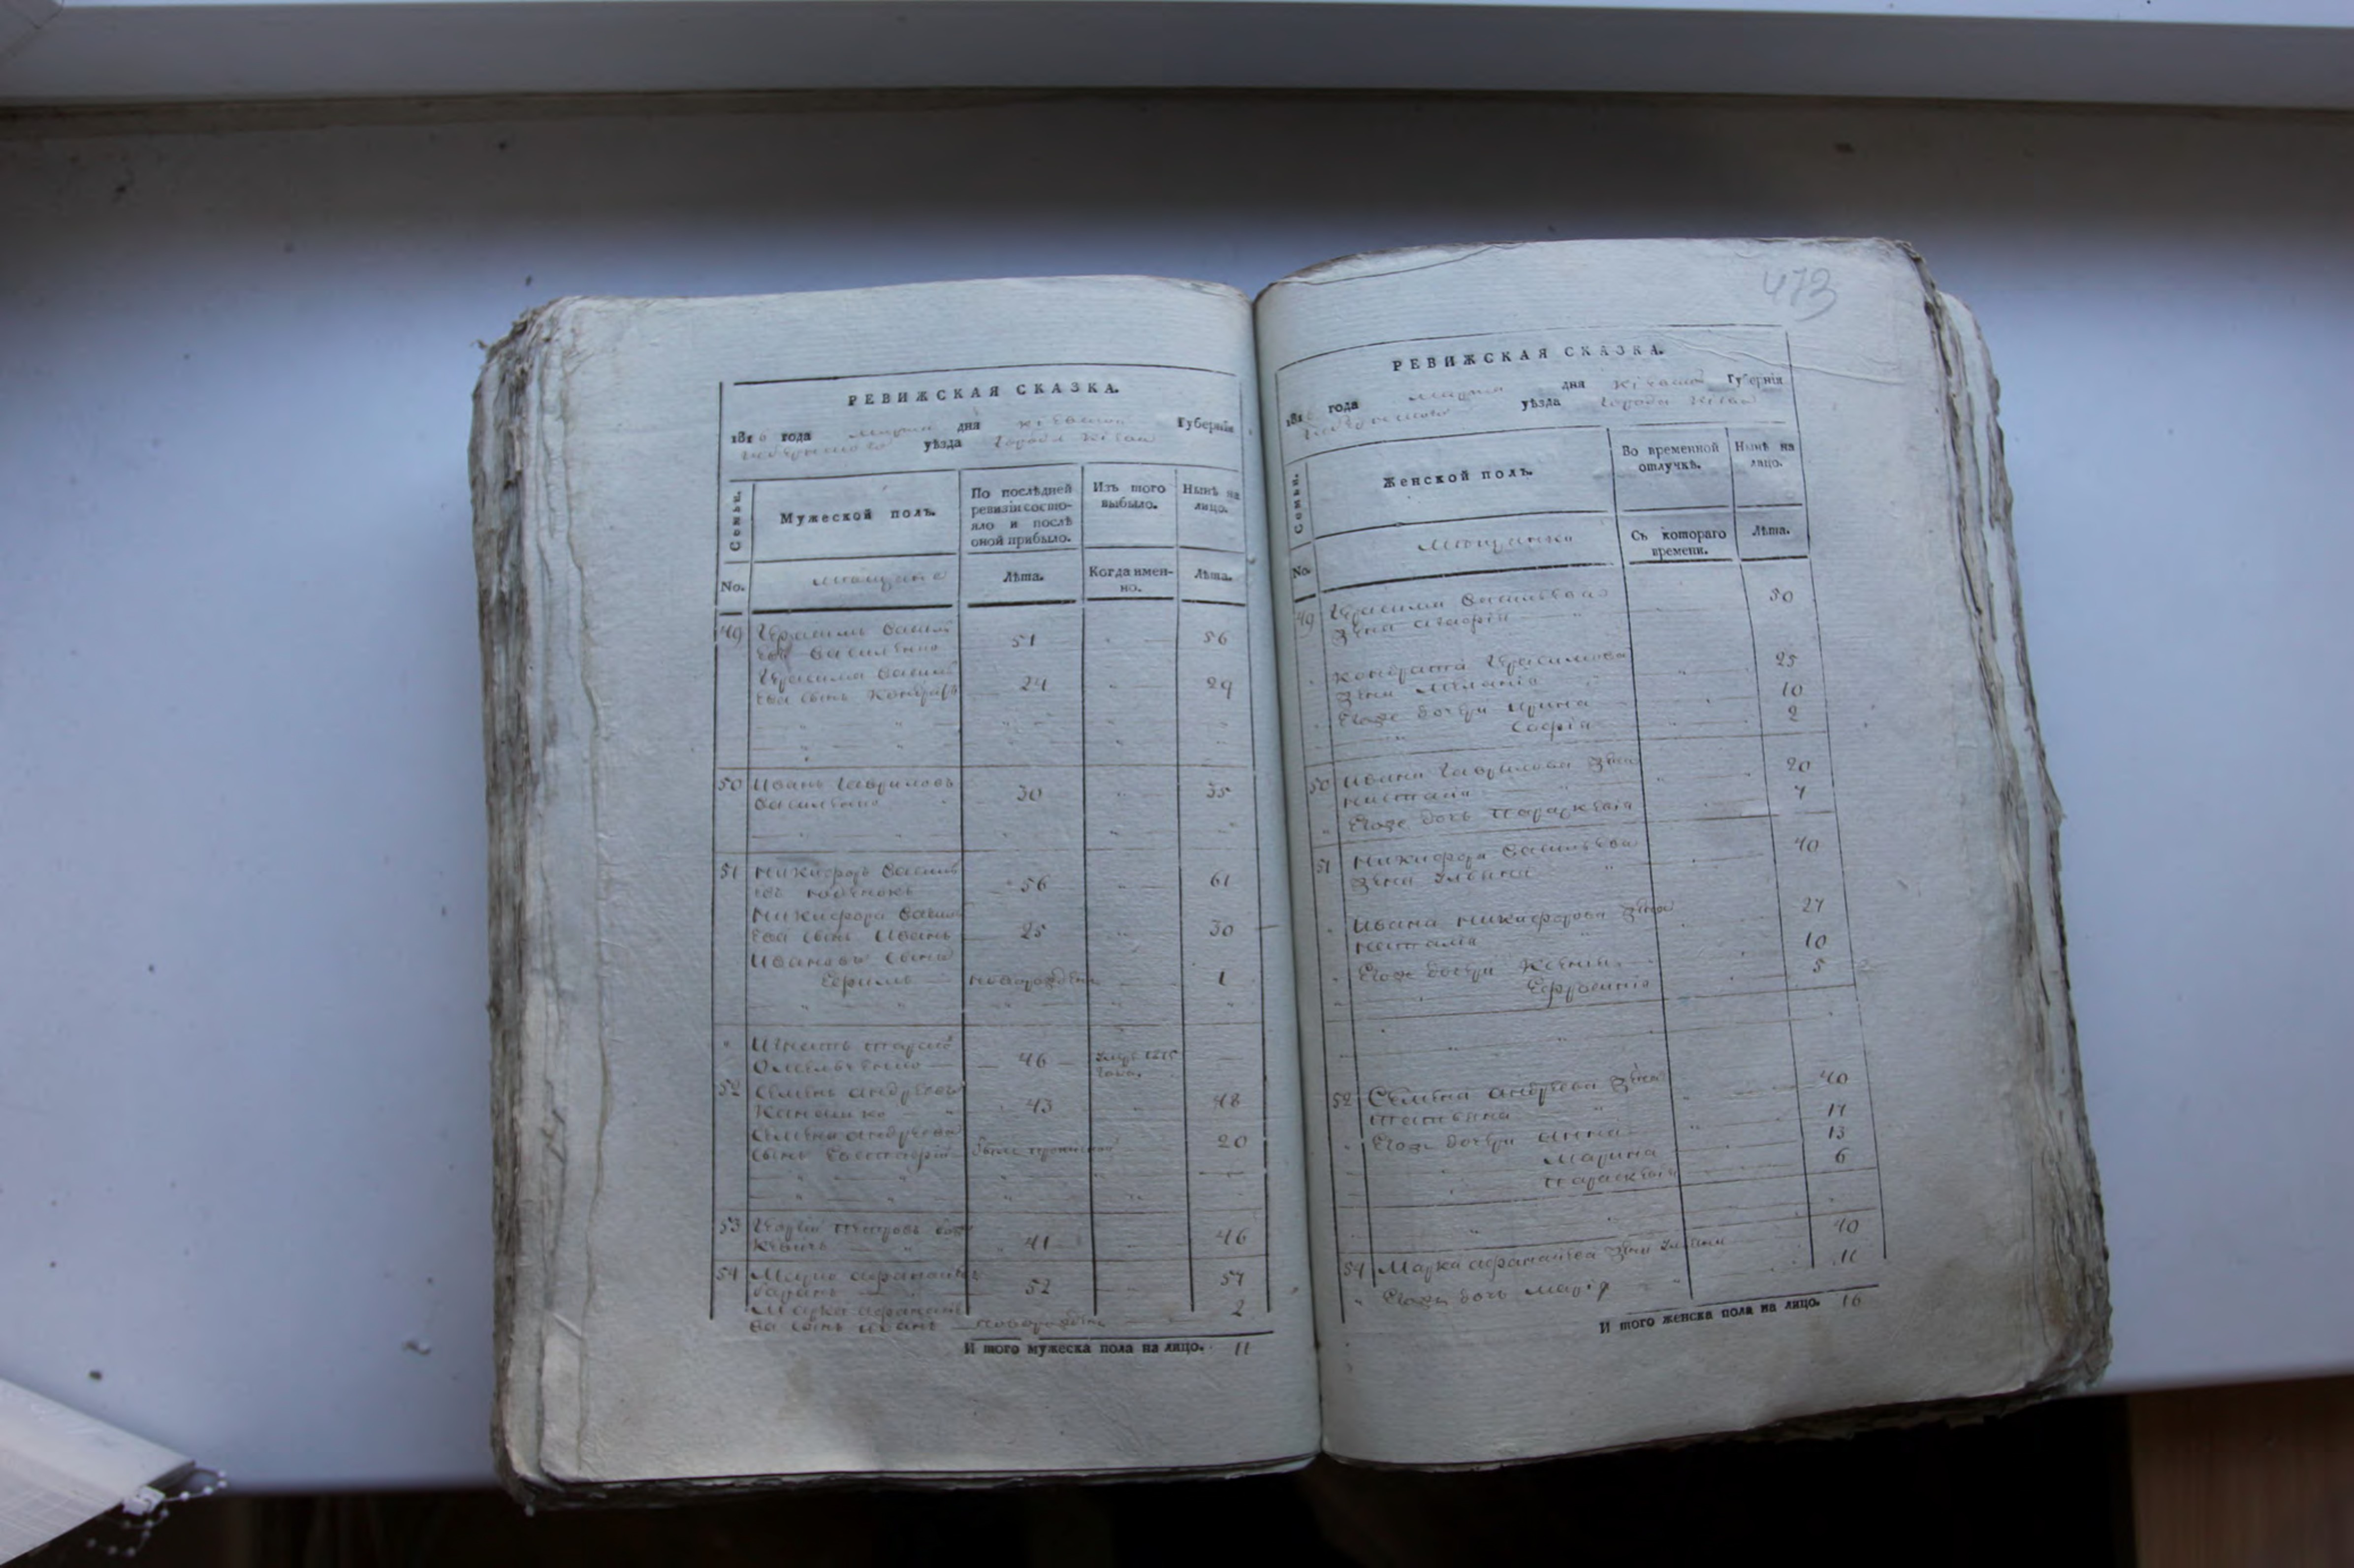 РЕВИЖСКАЯ СКАЗКА.
1816 года марта дня Кіевской Губерніи
уѣзда города Кіева
Семьи.
Мужеской полъ.
По послѣдней
ревизіи состо-
яло и послѣ
оной прибыло.
Изъ того
выбыло.
Нынѣ на
лицо.
No.
мещане
Лѣта.
Когда имен-
но.
Лѣта.
49 Герасимъ Василь
евъ Василенко 51 56
Герасима Василь
ева сынъ Кондратъ 24 29
50 Иванъ Гавриловъ
Василенко 30 35
51 Никифоръ Василь
евъ 56 61
Никифора Василь
ева сынъ Иванъ 25 30
Ивановъ сынъ
Ефимъ новорожденъ 1
Игнатъ Тарасо
Омельченко 46 умре 1815
года.
52 Семенъ Андреевъ
43 48
Семена Андреева
сынъ 20
53 Георгій Петровъ
41 46
54 Марко Афанасьевъ
52 57
Марка Афанасье
ва сынъ Иванъ новорожденъ 2
И того мужеска пола на лицо. 11
473
РЕВИЖСКАЯ СКАЗКА.
1816 года марта дня Кіевской Губерніи
уѣзда города Кіева
Семьи.
Женской полъ.
Во временной
отлучкѣ.
Нынѣ на
лицо.
No.
мещанки
Съ котораго
времени.
Лѣта.
49 Герасима Васильева
жена Агафія 50
Кондрата Герасимова
жена Меланія 25
Егоже дочери Ирина 10
Софія 2
50 Ивана Гаврилова жена
Наталія 20
Егоже дочь Параскевія 7
51 Никифора Васильева
жена Ульяна 40
Ивана Никифорова жена
Наталія 27
Егоже дочери Ксенія 10
Ефросинія 5
52 Семена Андреева жена
Татьяна 40
Егоже дочери Анна 17
Марина 13
Параскевія 6
54 Марка Афанасьева жена Ульяна 40
Егоже дочь Марія 11
И того женска пола на лицо. 16